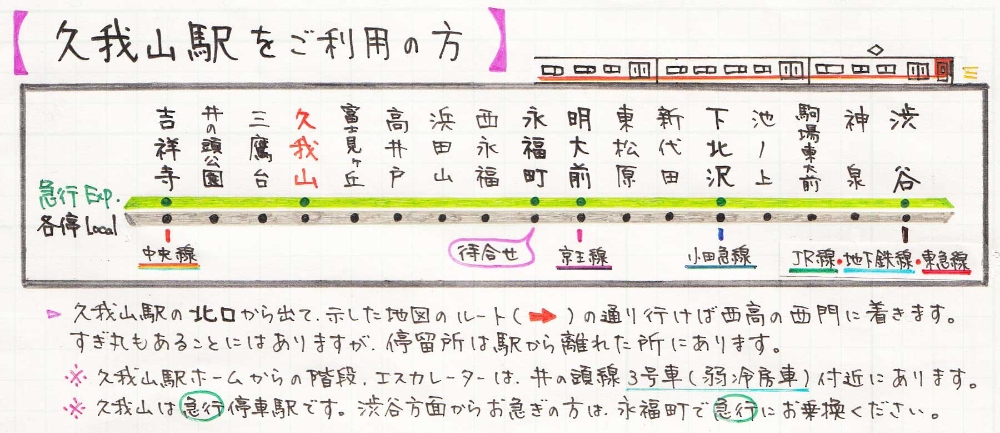 【久我山駅をご利用の方】
吉祥寺
井の頭公園
三鷹台
久我山
富士見ヶ丘
高井戸
浜田山
西永福
永福町
明大前
東松原
新代田
下北沢
池ノ上
駒場東大前
神泉
渋谷
急行 Exp.
各停 Local
中央線
待合せ
京王線
小田急線
JR線・地下鉄線・東急線
久我山駅の北口から出て、示した地図のルート(➡)の通り行けば西高の西門に着きます。
すぎ丸もあることにはありますが、停留所は駅から離れた所にあります。
※ 久我山駅ホームからの階段、エスカレーターは、井の頭線3号車(弱冷房車)付近にあります。
※ 久我山は急行停車駅です。渋谷方面からお急ぎの方は、永福町で急行にお乗換ください。